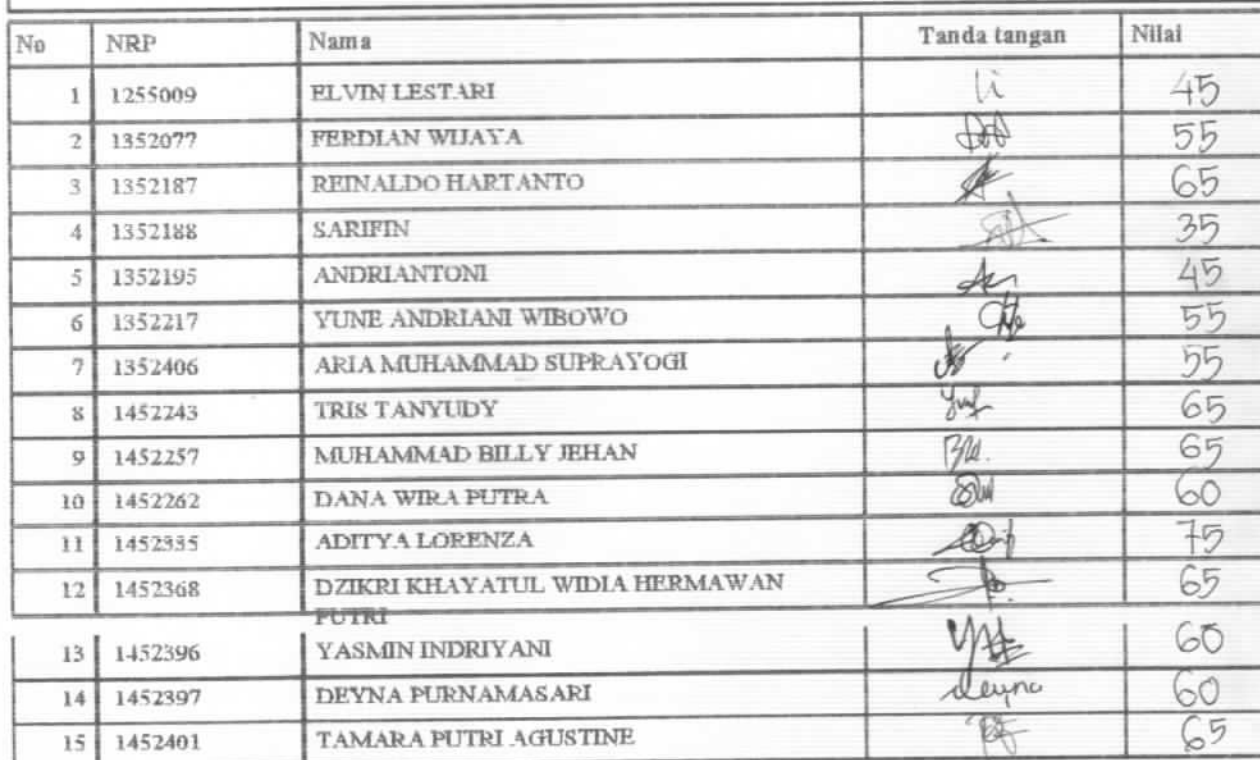 No NRP Nama Tanda tangan Nilai
1 1255009 ELVIN LESTARI 45
2 1352077 FERDIAN WIJAYA 55
3 1352187 REINALDO HARTANTO 65
4 1352188 SARIFIN 35
5 1352195 ANDRIANTONI 45
6 1352217 YUNE ANDRIANI WIBOWO 55
7 1352406 ARIA MUHAMMAD SUPRAYOGI 55
8 1452243 TRIS TANYUDY 65
9 1452257 MUHAMMAD BILLY JEHAN 65
10 1452262 DANA WIRA PUTRA 60
11 1452335 ADITYA LORENZA 75
12 1452368 DZIKRI KHAYATUL WIDIA HERMAWAN 65
PUTRI
13 1452396 YASMIN INDRIYANI 60
14 1452397 DEYNA PURNAMASARI deyna 60
15 1452401 TAMARA PUTRI AGUSTINE 65